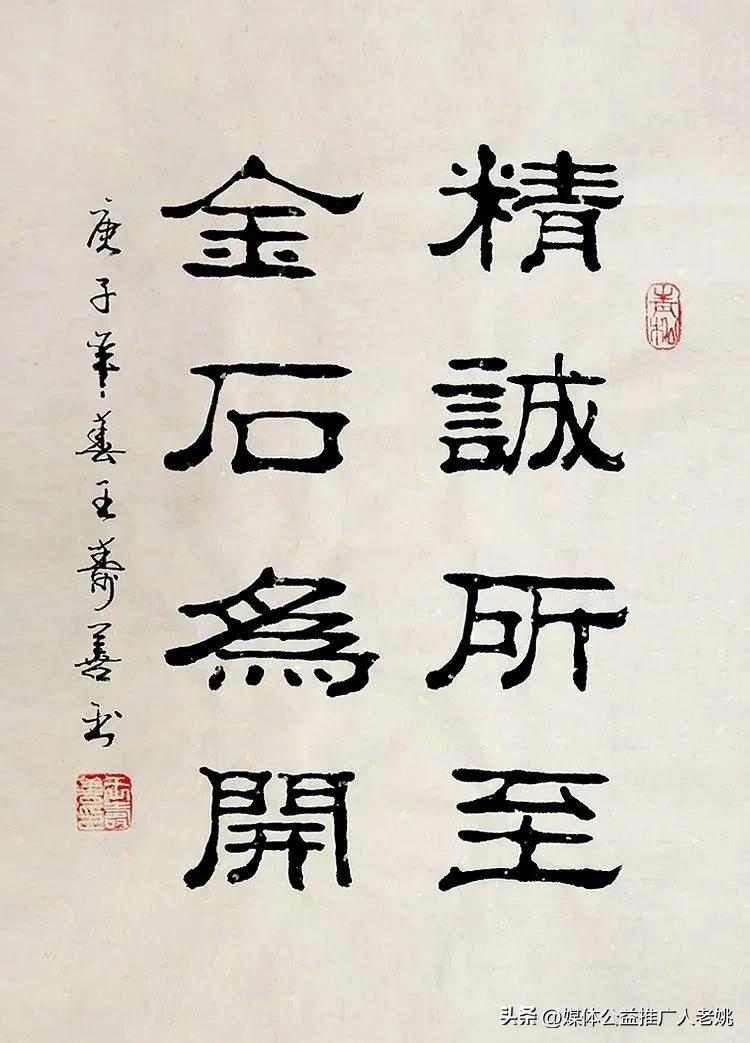 精誠所至
金石為開
庚子年春王壽善书
青松
王壽善印
头条 @媒体公益推广人老姚